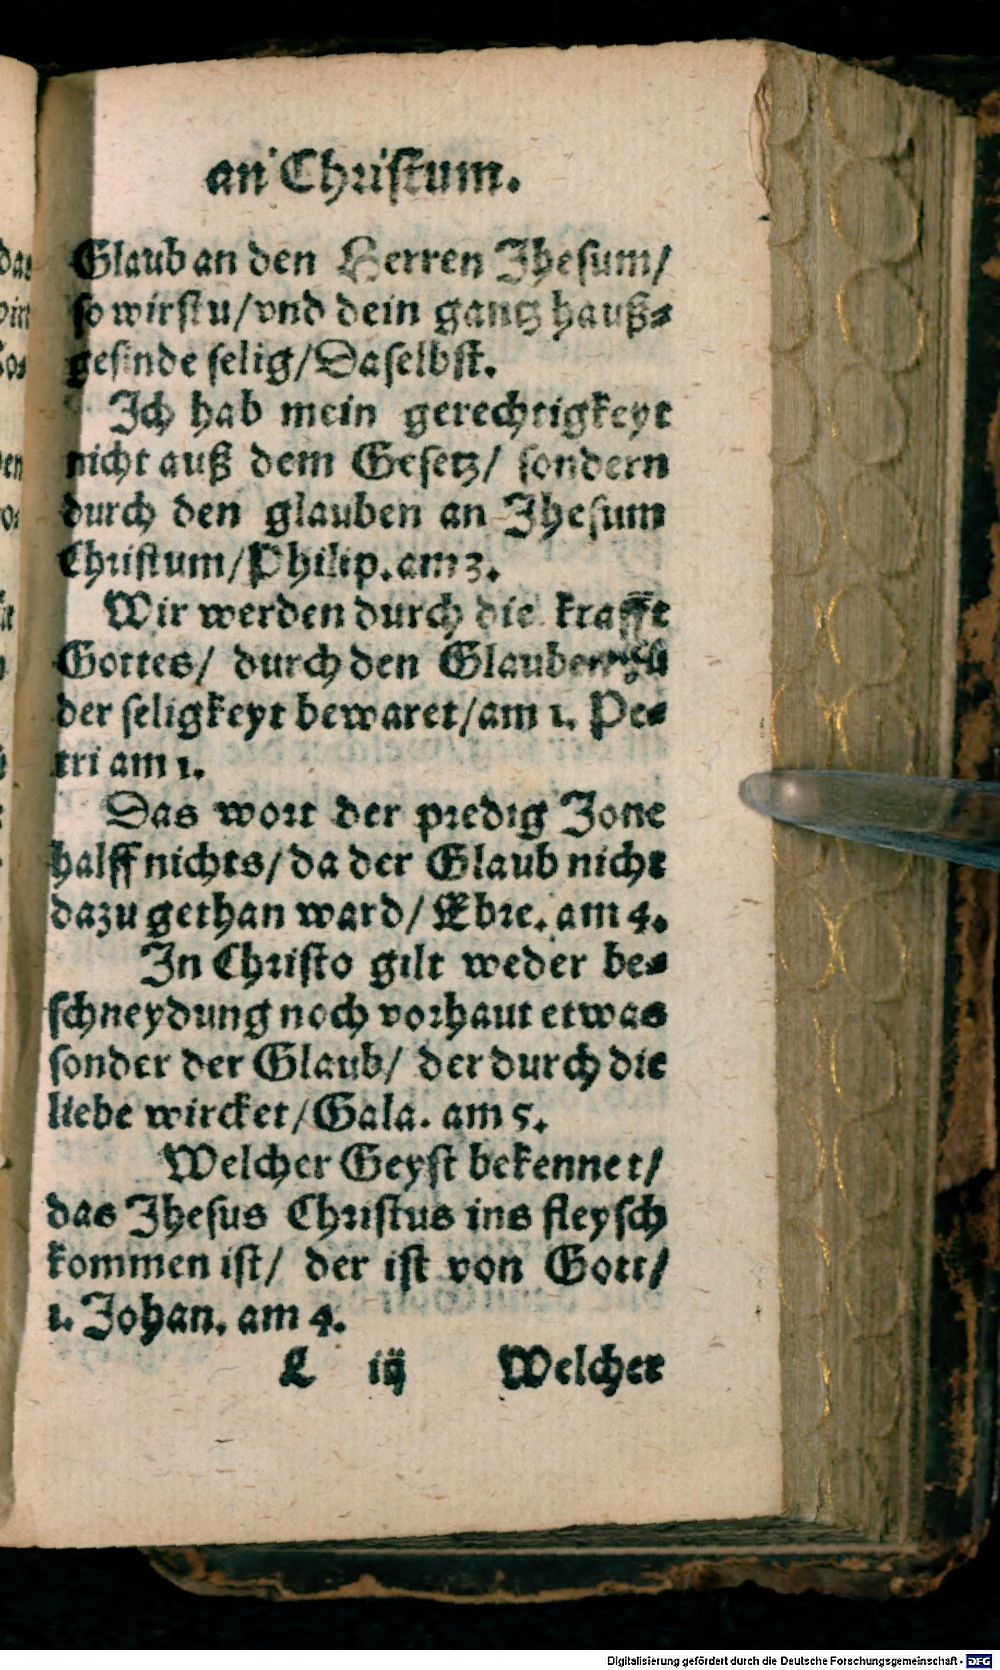 an Christum.
Glaub an den Herren Jhesum/
so wirstu/vnd dein gantz hauß⸗
gesinde selig/Daselbst.
Jch hab mein gerechtigkeyt
nicht auß dem Gesetz/ sondern
durch den glauben an Jhesum
Christum/Philip. am 3.
Wir werden durch die krafft
Gottes/ durch den Glauben zů
der seligkeyt bewaret/am 1. Pe⸗
tri am 1.
Das wort der predig Jone
halff nichts/da der Glaub nicht
dazu gethan ward/ Ebre. am 4.
Jn Christo gilt weder be⸗
schneydung noch vorhaut etwas
sonder der Glaub/ der durch die
liebe wircket/Gala. am 5.
Welcher Geyst bekennet/
das Jhesus Christus ins fleysch
kommen ist/ der ist von Gott/
1. Johan. am 4.
L iij Welcher
Digitalisierung gefördert durch die Deutsche Forschungsgemeinschaft - DFG